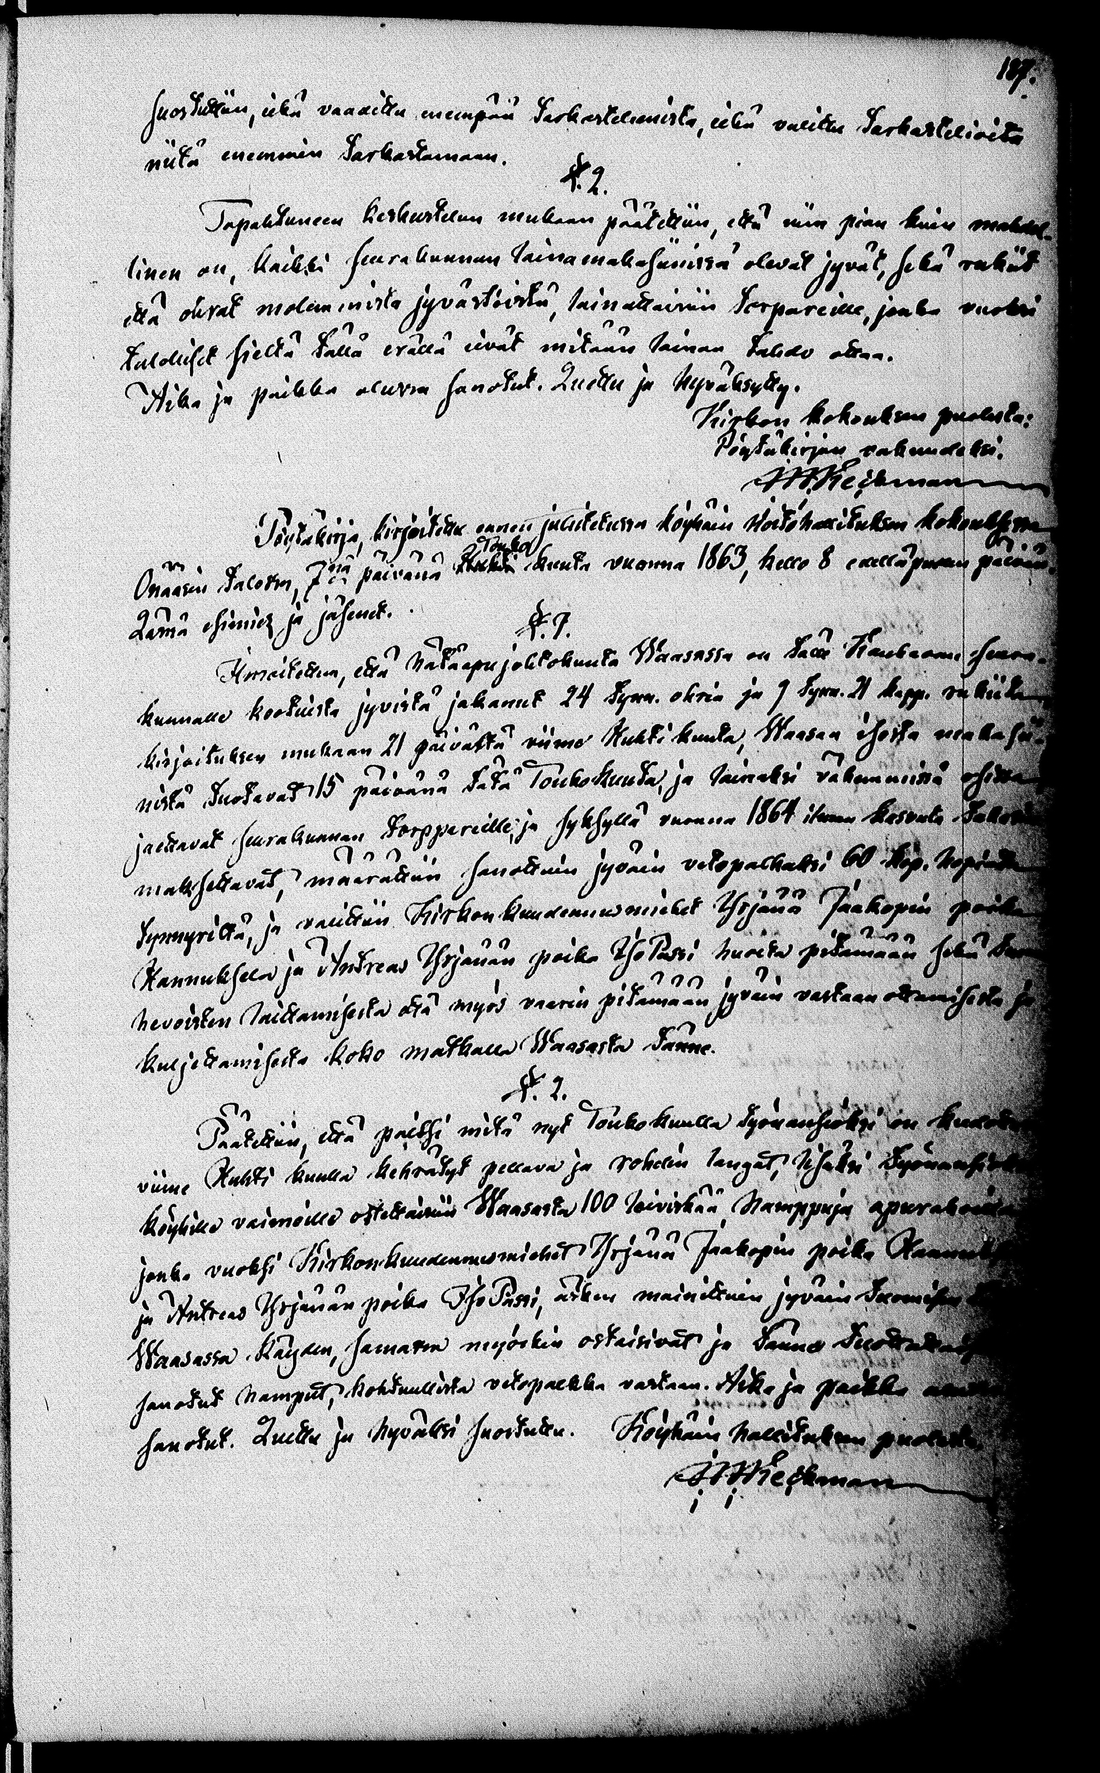 187.
suostuttiin, eikä vaadittu enempää Tarkastelemista, eikä valittu Tarkastelioita
niitä enemmin Tarkastamaan.
§. 2.
Tapahtuneen keskustelun mukaan päätettiin, että niin pian kuin mahdol-
linen on, kaikki seurakunnan lainamakasiinissä olevat jyvät, sekä rukiit
että ohrat molemmista jyvästöistä, lainattaisiin Torpareille, jonka vuoksi
Talolliset sieltä Tällä erällä eivät mitään lainan Tahdo ottaa.
Aika ja paikka olivva sanotut. Luettu ja hyväksytty.
Kirkon kokouksen puolesta:
Pöytäkirjan vakuudeksi.
Heikman
Pöytäkirja, kirjoitettu ennen julistetussa köyhäin Hoitohallituksen kokouksessa
Onaasin Talossa, 7nä päivänä Touko kuuta vuonna 1863, kello 8 edelläpuolen päivän.
Läsnä esimies ja jäsenet.
§. 1.
Ilmoitettua, että hätäapujohtokunta Waasassa on Tälle Kauhavan seura-
kunnalle kootuista jyvistä jakanut 24 Tynn. ohria ja 9 Tynn. 21 kapp. rukiita
kirjoituksen mukaan 21 päivästä viime Huhtikuuta, Waasan isosta makasii-
nistä Tuotavat 15 päivänä Tätä Toukokuuta, ja lainaksi vähemmissä osissa
jaettavat seurakunnan Torppareille, ja syksyllä vuonna 1864 ilman kasvuta Takaisin
maksettavat, määrättiin sanottuin jyväin vetopalkaksi 60 kop. hopiata
Tynnyriltä, ja valittiin Kirkonkuudennusmiehet Yrjänä Jaakopin poika
Hannuksela ja Andreas Yrjänän poika Iso Passi huolta pitämään sekä
hevoisten laittamisesta että myös vaarin pitämään jyväin vastaan ottamisesta ja
kuljettamisesta koko matkalla Waasasta Tänne.
§. 2.
Päätettiin, että paitsi mitä nyt Toukokuulla Työnansioksi on kudottu
viime Huhti kuulla kehrätyt pellava ja rohdin langat, lisäksi Työnansioksi
köyhille vaimoille ostettaisiin Waasasta 100 leiviskää hamppuja apurahoilla
jonka vuoksi Kirkonkuudennusmiehet Yrjänä Jaakopin poika Hannuksela
ja Andreas Yrjänän poika Iso Passi, äsken mainittuin jyväin Tuomisessa
Waasassa käyden, samassa myöskin ostaisivat ja Tänne Tuottaisivat
sanotut hamput, kohtuullista vetopalkka vastaan. Aika ja paikka
sanotut. Luettu ja hyväksi suostuttu. Köyhäin hallituksen puolesta
Heikman